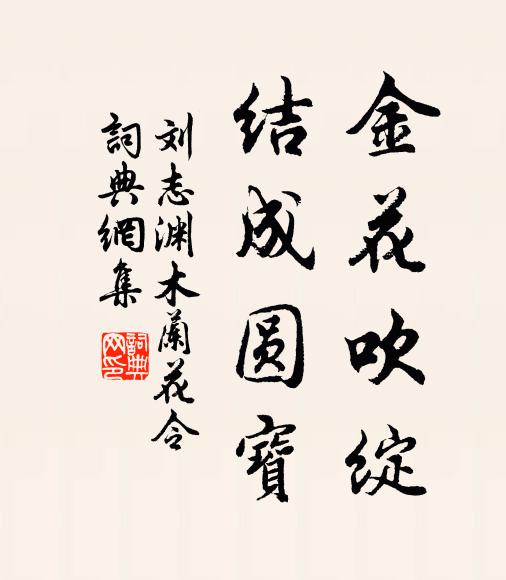 金花吹绽
结成圆寶
刘志渊木蘭花令
詞典網集
詞典网印